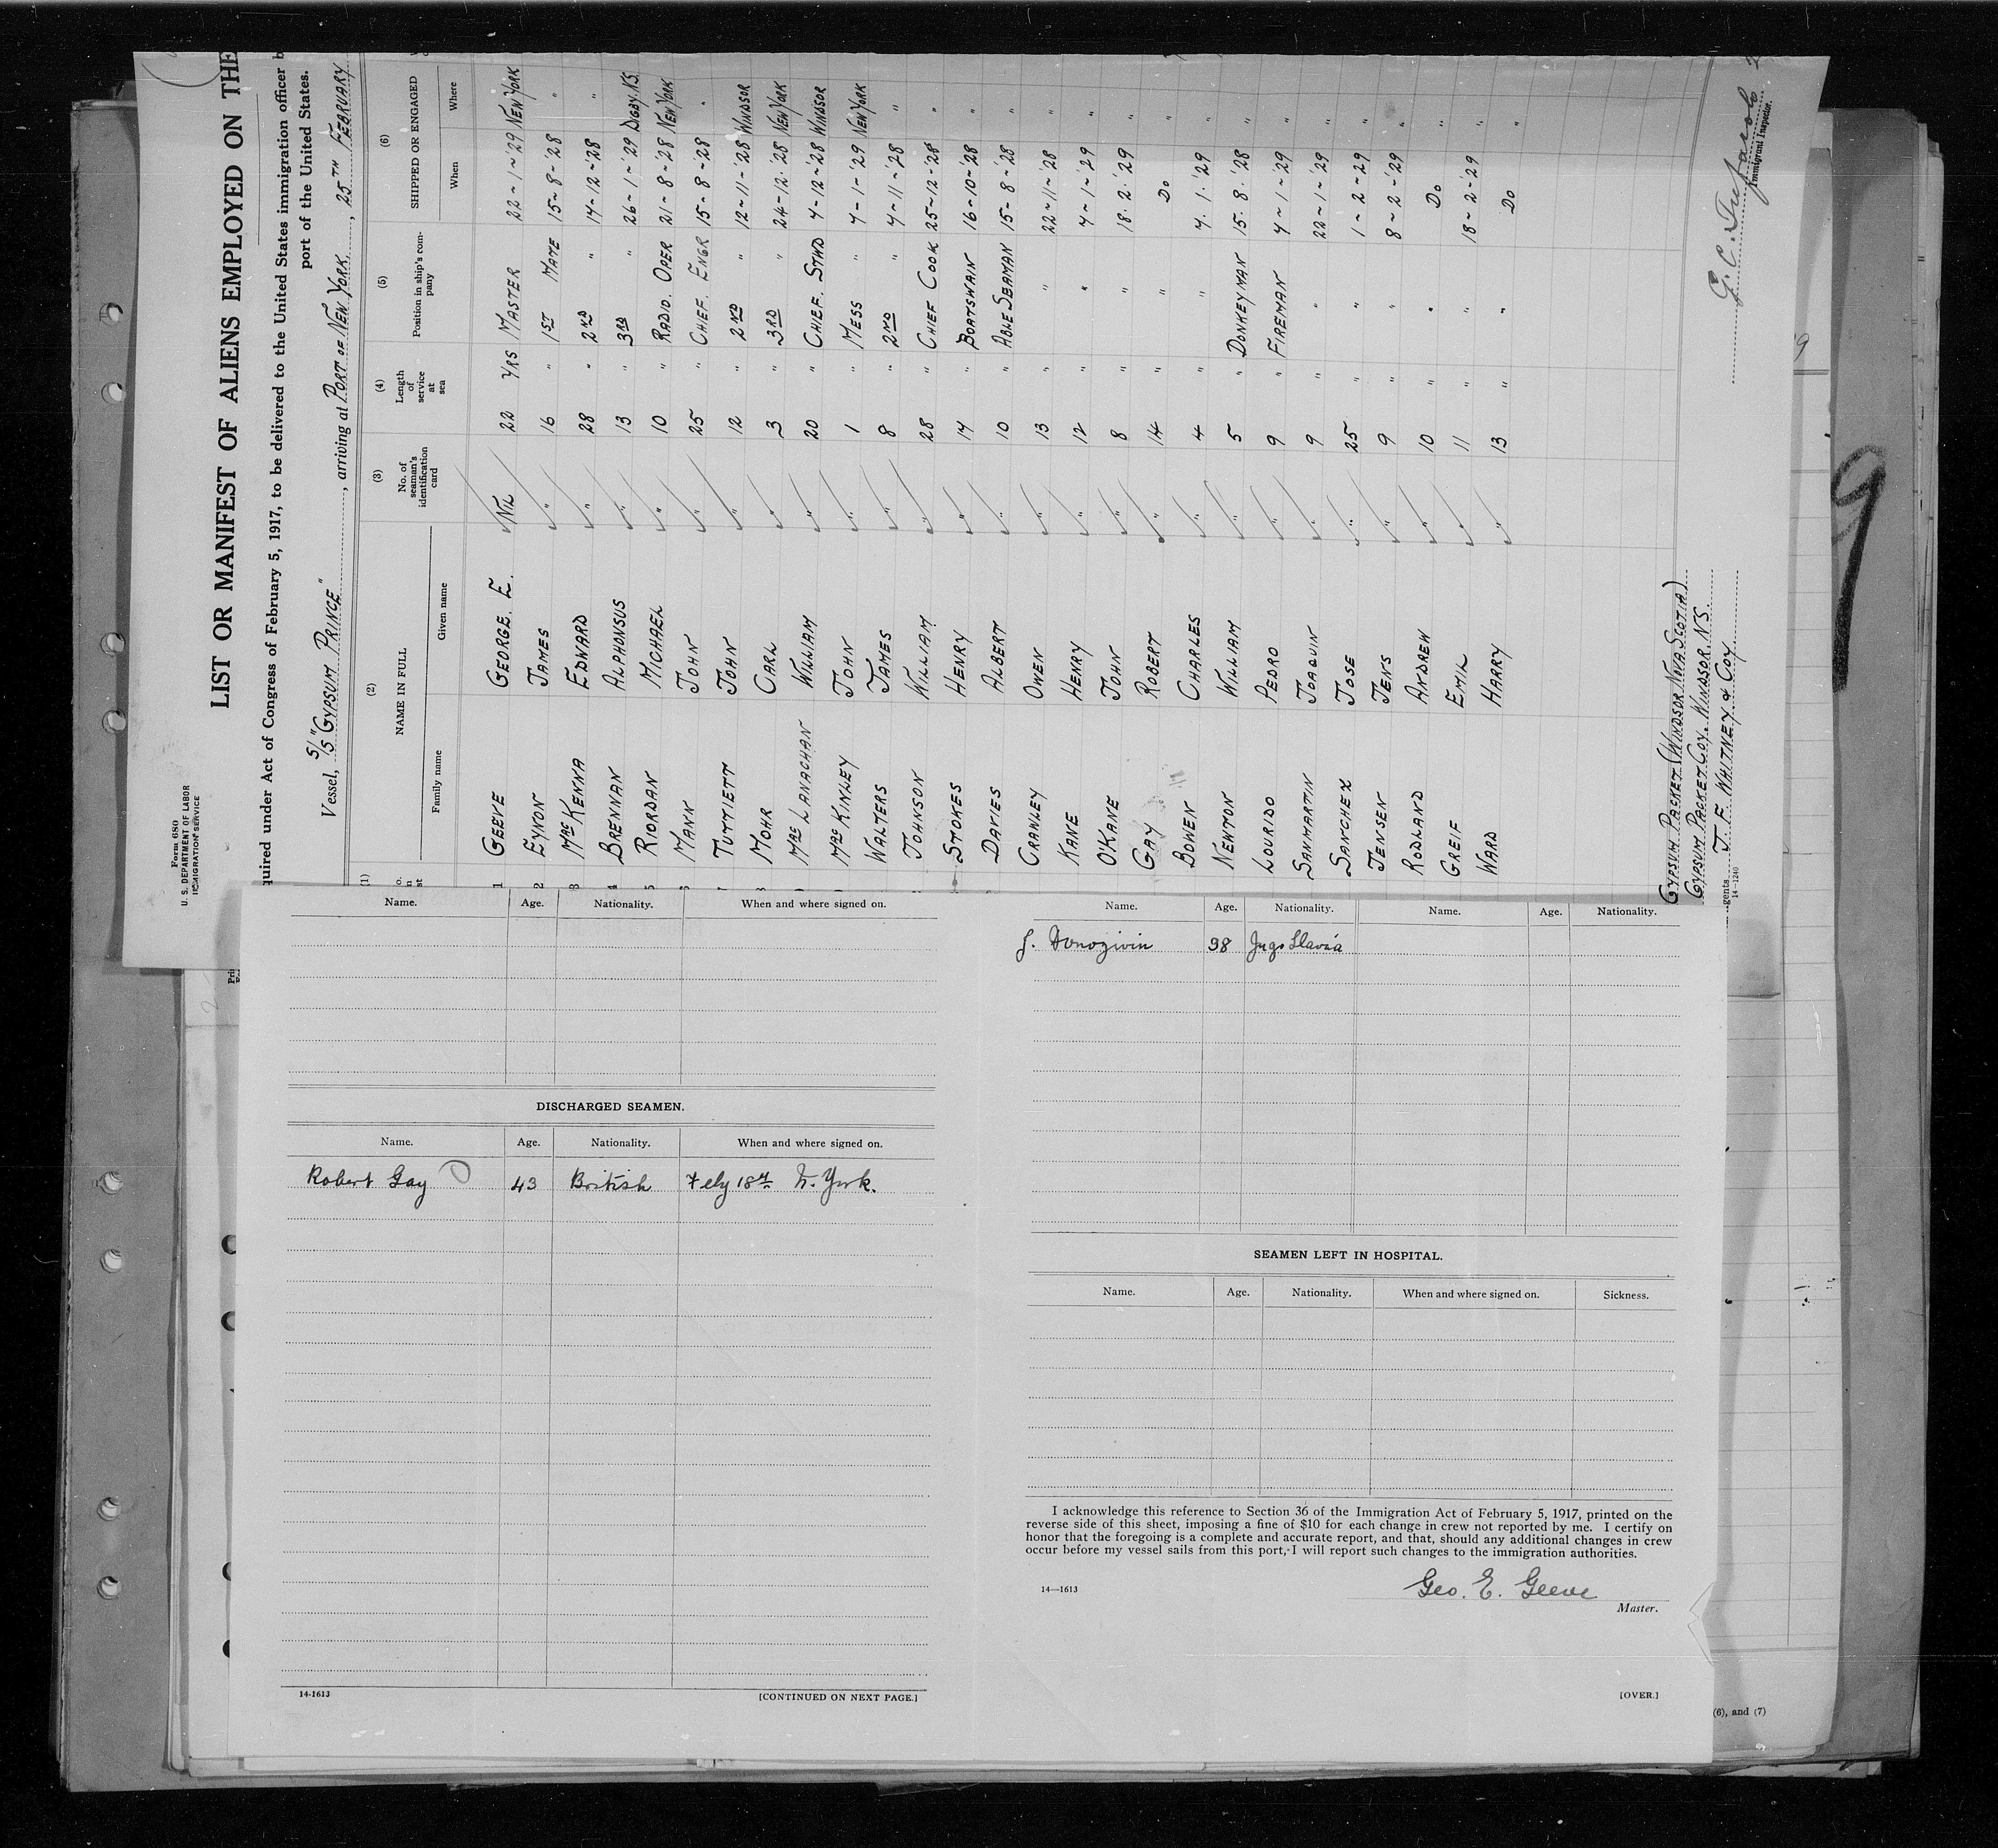 Form 680
U. S. DEPARTMENT OF LABOR
IMMIGRATION SERVICE
LIST OR MANIFEST OF ALIENS EMPLOYED ON THE
quired under Act of Congress of February 5, 1917, to be delivered to the United States immigration officer b
port of the United States.
Vessel, S/S "GYPSUM PRINCE", arriving at PORT OF NEW YORK, 25TH FEBRUARY
(1) (2) (3) (4) (5) (6)
NAME IN FULL No. of seaman's identification card Length of service at sea Position in ship's company SHIPPED OR ENGAGED
Family name Given name When Where
1 GEEVE GEORGE. E. NIL 22 YRS MASTER 22-1-'29 NEW YORK
2 EYNON JAMES " 16 " 1ST MATE 15-8-'28 "
3 McKENNA EDWARD " 28 " 2ND " 14-12-'28 "
4 BRENNAN ALPHONSUS " 13 " 3RD " 26-1-'29 DIGBY. N.S.
5 RIORDAN MICHAEL " 10 " RADIO. OPER 21-8-'28 NEW YORK
6 MANN JOHN " 25 " CHIEF. ENGR 15-8-'28 "
7 TUTTIETT JOHN " 12 " 2ND " 12-11-'28 WINDSOR
8 MOHR CARL " 3 " 3RD " 24-12-'28 NEW YORK
McLANACHAN WILLIAM " 20 " CHIEF. STWD 4-12-'28 WINDSOR
McKINLEY JOHN " 1 " MESS " 4-1-'29 NEW YORK
WALTERS JAMES " 8 " 2ND " 4-11-'28 "
JOHNSON WILLIAM " 28 " CHIEF COOK 25-12-'28 "
STOKES HENRY " 14 " BOATSWAIN 16-10-'28 "
DAVIES ALBERT " 10 " ABLE SEAMAN 15-8-'28 "
CRANLEY OWEN " 13 " " 22-11-'28 "
KANE HENRY " 12 " " 4-1-'29 "
O'KANE JOHN " 8 " " 18.2.'29 "
GAY ROBERT " 14 " " DO "
BOWEN CHARLES " 4 " " 4.1.'29 "
NEWTON WILLIAM " 5 " DONKEYMAN 15.8.'28 "
LOURIDO PEDRO " 9 " FIREMAN 4-1-'29 "
SANMARTIN JOAQUIN " 9 " " 22-1-'29 "
SANCHEX JOSE " 25 " " 1-2-'29 "
JENSEN JENS " 9 " " 8-2-'29 "
RODLAND ANDREW " 10 " " DO "
GREIF EMIL " 11 " " 18-2-'29 "
WARD HARRY " 13 " " DO "
GYPSUM PACKET (WINDSOR NVA SCOTIA)
GYPSUM PACKET COY. WINDSOR N.S.
gents J. F. WHITNEY & COY.
14-1240
Immigrant Inspector.
Name. Age. Nationality. When and where signed on.
DISCHARGED SEAMEN.
Name. Age. Nationality. When and where signed on.
Robert Gay 43 British Feby 18th N. York.
14-1613 [CONTINUED ON NEXT PAGE.]
Name. Age. Nationality. Name. Age. Nationality.
38 Jugo Slavia
SEAMEN LEFT IN HOSPITAL.
Name. Age. Nationality. When and where signed on. Sickness.
I acknowledge this reference to Section 36 of the Immigration Act of February 5, 1917, printed on the
reverse side of this sheet, imposing a fine of $10 for each change in crew not reported by me. I certify on
honor that the foregoing is a complete and accurate report, and that, should any additional changes in crew
occur before my vessel sails from this port, I will report such changes to the immigration authorities.
14—1613
Geo. E. Geeve
Master.
[OVER.]
(6), and (7)
9